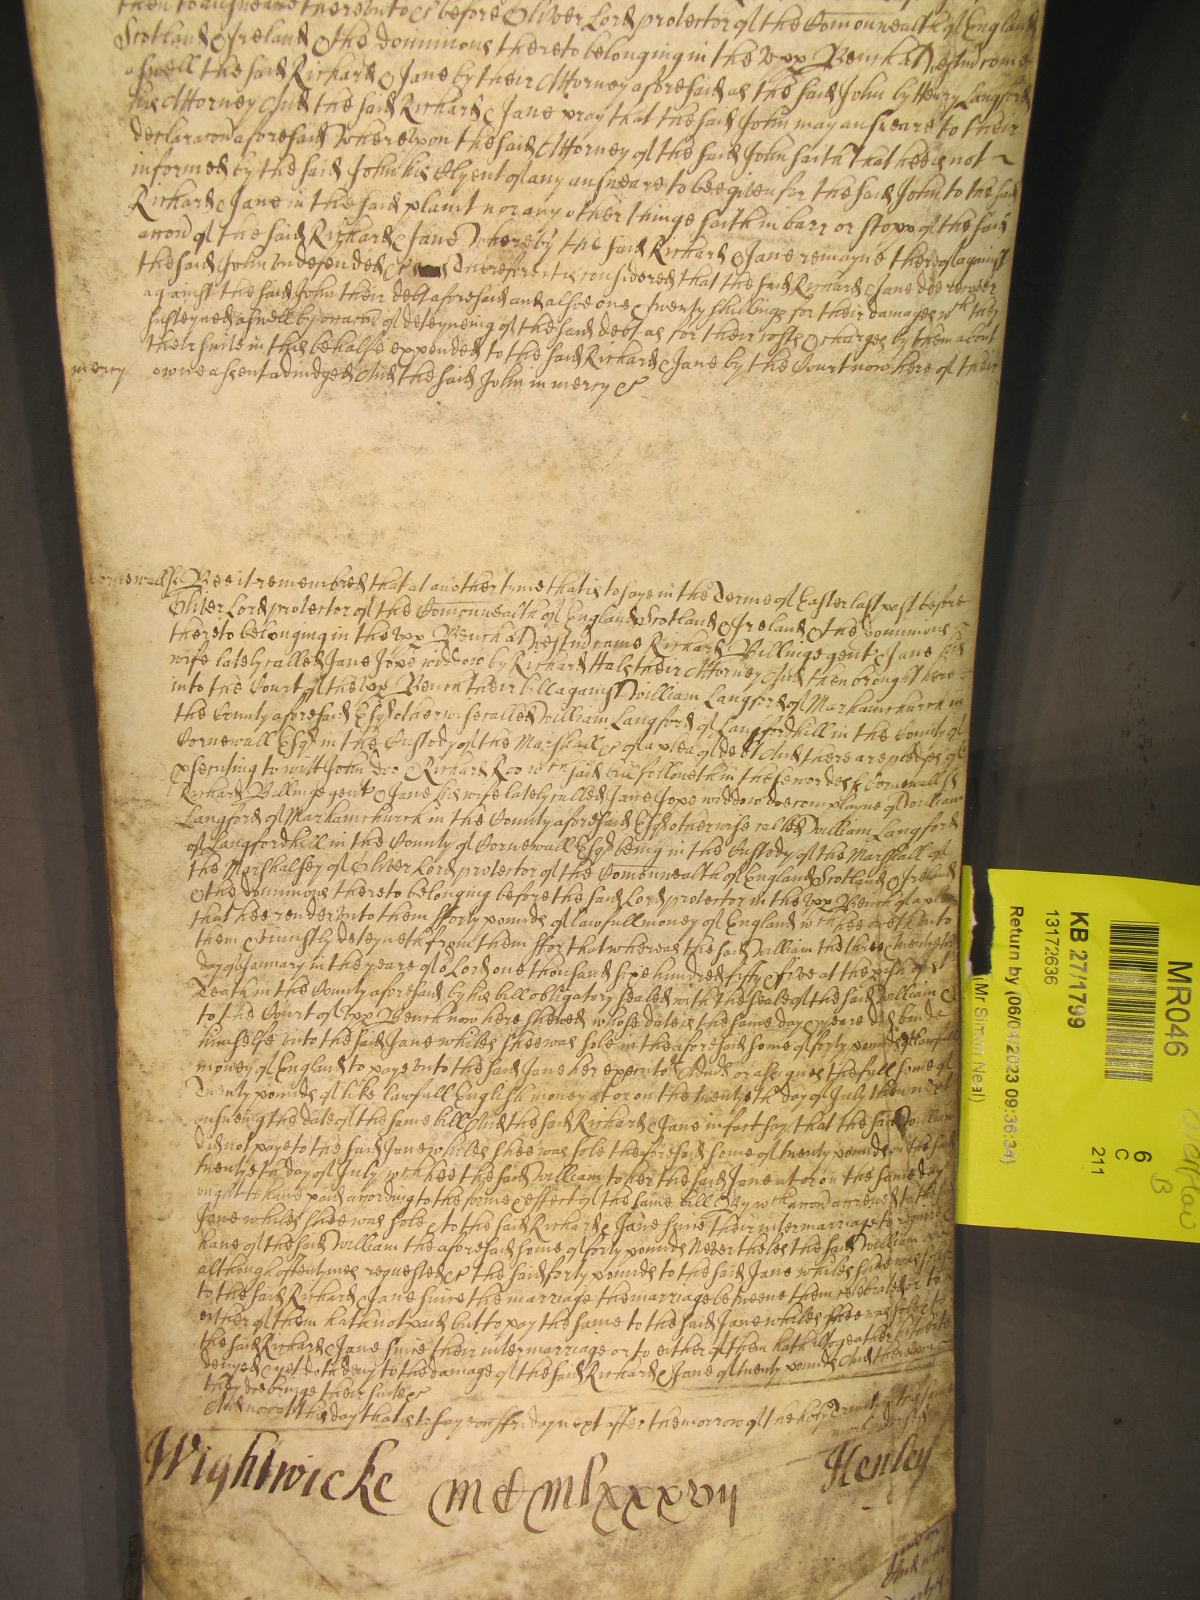 then to answeare thereunto &c before Oliver Lord protector of the Comonwealth of England
Scotland & Ireland & the dominions thereto belonging in the upp Bench at Westmr come
aswell the said Richard & Jane by their Attorney aforesaid as the said John by Henry Langford
his Attorney And the said Richard & Jane pray that the said John may answeare to their
declaracon aforesaid Whereupon the said Attorney of the said John saith that hee is not
informed by the said John his Clyent of any answeare to bee given for the said John to the said
Richard & Jane in the said plaint nor any other thinge saith in barr or stopp of the said
accon of the said Richard & Jane Whereby the said Richard & Jane remayne thereof against
the said John undefended &c Therefore it is considered that the said Richard & Jane doe recover
against the said John their debt aforesaid and alsoe one & twenty shillings for their damages wch they
susteyned aswell by occacon of deteyneing of the said debt as for their costs & charges by them about
their suite in this behalfe expended to the said Richard & Jane by the Court now here of their
mercy owne assent adiudged And the said John in mercy &c
Cornewall ss Bee it remembred that at another tyme that is to saye in the Terme of Easter last past before
Oliver Lord protector of the Comonwealth of England Scotland & Ireland & the dominions
thereto belonging in the upp Bench at Westmr came Richard Billinge gent & Jane his
wife lately called Jane Jope widdow by Richard Hals their Attorney And then brought here
into the Court of the upp Bench their bill against William Langford of Marhamchurch in
the County aforesaid Esqr otherwise called William Langford of Langfordhill in the County of
Cornewall Esqr in the Custody of the Marshall &c of a plea of debt And there are pledges of
psecuting to witt John Doo & Richard Roo wch said bill followeth in these wordes ss Cornewall ss
Richard Billinge gent & Jane his wife lately called Jane Jope widdow doe complayne of William
Langford of Marhamchurch in the County aforesaid Esqr otherwise called William Langford
of Langfordhill in the County of Cornewall Esqr being in the Custody of the Marshall of
the Marshalsey of Oliver Lord protector of the Comonwealth of England Scotland & Ireland
& the dominions thereto belonging before the said Lord protector in the upp Bench of a plea
that hee render unto them fforty pounds of lawfull money of England wch hee oweth unto
them & uniustly deteyneth from them ffor that whereas the said William the three & twentieth
day of January in the yeare of or Lord one thousand sixe hundred fifty & five at the pish of St
Teath in the County aforesaid by his bill obligatory sealed with the seale of the said William &
to the Court of upp Bench now here shewed whose date is the same day & yeare did binde
himselfe unto the said Jane whiles shee was sole in the aforesaid some of forty pounds of lawfull
money of England to pay unto the said Jane her executors Admrs or assignes the full some of
Twenty pounds of like lawfull English money at or on the twentieth day of July then next
ensueing the date of the same bill And the said Richard & Jane in fact say that the said William
did not paye to the said Jane whiles shee was sole the aforesaid some of twenty pounds on the said
twentieth day of July wch hee the said William to her the said Jane at or on the same day
ought to have paid according to the forme & effect of the same bill By wch accon accrewed to the said
Jane whiles shee was sole & to the said Richard & Jane since their intermarriage to require &
have of the said William the aforesaid some of forty pounds Neverthelesse the said William
although oftentymes requested &c the said forty pounds to the said Jane whiles shee was sole or
to the said Richard & Jane since the marriage the marriage betweene them celebrated or to
either of them hath not paid but to pay the same to the said Jane whiles shee was sole & to
the said Richard & Jane since their intermarriage or to either of them hath altogeather hitherto
denyed & yet doth deny to the damage of the said Richard & Jane of twenty pounds And thereupon
they doe bringe their suite &c
And now att this day that is to say on ffriday next after the morrow of the holy Trinity
Wightwicke
Henley
MR046
KB 271/1799
13172636
Return by (06/04/2023 09:36:34)
(Mr Simon Neal)
6
C
211
B